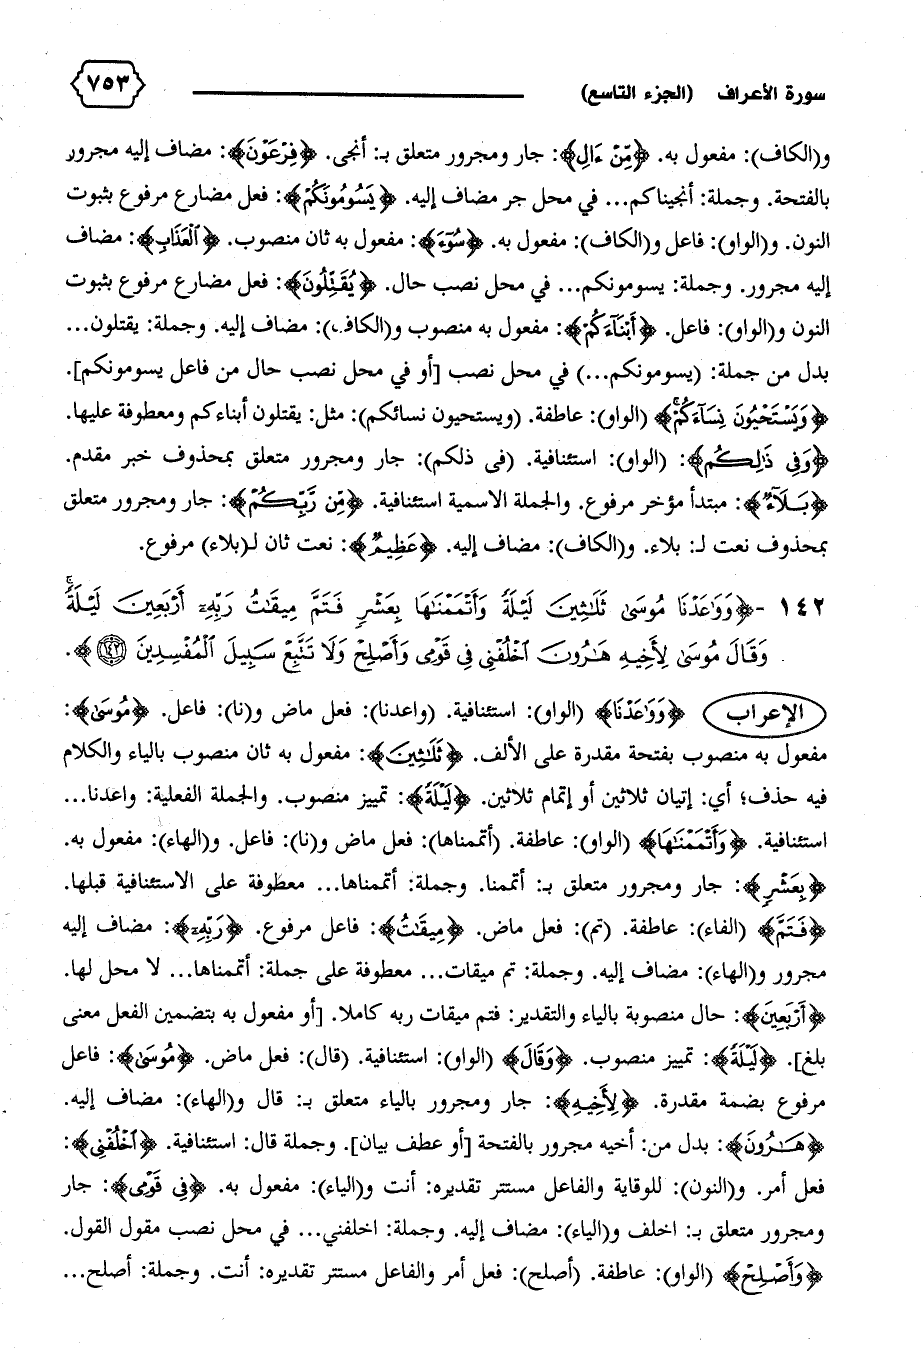 سورة الأعراف (الجزء التاسع) ٧٥٣
و(الكاف): مفعول به. ﴿مِّنْ ءَالِ﴾: جار ومجرور متعلق بـ: أنجى. ﴿فِرْعَوْنَ﴾: مضاف إليه مجرور
بالفتحة. وجملة: أنجيناكم... في محل جر مضاف إليه. ﴿يَسُومُونَكُمْ﴾: فعل مضارع مرفوع بثبوت
النون. و(الواو): فاعل و(الكاف): مفعول به. ﴿سُوٓءَ﴾: مفعول به ثان منصوب. ﴿ٱلْعَذَابِ﴾: مضاف
إليه مجرور. وجملة: يسومونكم... في محل نصب حال. ﴿يُقَتِّلُونَ﴾: فعل مضارع مرفوع بثبوت
النون و(الواو): فاعل. ﴿أَبْنَآءَكُمْ﴾: مفعول به منصوب و(الكاف): مضاف إليه. وجملة: يقتلون...
بدل من جملة: (يسومونكم...) في محل نصب [أو في محل نصب حال من فاعل يسومونكم].
﴿وَيَسْتَحْيُونَ نِسَآءَكُمْ﴾ (الواو): عاطفة. (ويستحيون نسائكم): مثل: يقتلون أبناءكم ومعطوفة عليها.
﴿وَفِى ذَٰلِكُم﴾: (الواو): استئنافية. (فى ذلكم): جار ومجرور متعلق بمحذوف خبر مقدم.
﴿بَلَآءٌ﴾: مبتدأ مؤخر مرفوع. والجملة الاسمية استئنافية. ﴿مِّن رَّبِّكُمْ﴾: جار ومجرور متعلق
بمحذوف نعت لـ: بلاء. و(الكاف): مضاف إليه. ﴿عَظِيمٌ﴾: نعت ثان لـ(بلاء) مرفوع.
١٤٢ - ﴿وَوَٰعَدْنَا مُوسَىٰ ثَلَٰثِينَ لَيْلَةً وَأَتْمَمْنَٰهَا بِعَشْرٍ فَتَمَّ مِيقَٰتُ رَبِّهِۦٓ أَرْبَعِينَ لَيْلَةً ۚ
وَقَالَ مُوسَىٰ لِأَخِيهِ هَٰرُونَ ٱخْلُفْنِى فِى قَوْمِى وَأَصْلِحْ وَلَا تَتَّبِعْ سَبِيلَ ٱلْمُفْسِدِينَ ١٤٢﴾.
الإعراب ﴿وَوَٰعَدْنَا﴾ (الواو): استئنافية. (واعدنا): فعل ماض و(نا): فاعل. ﴿مُوسَىٰ﴾:
مفعول به منصوب بفتحة مقدرة على الألف. ﴿ثَلَٰثِينَ﴾: مفعول به ثان منصوب بالياء والكلام
فيه حذف؛ أي: إتيان ثلاثين أو إتمام ثلاثين. ﴿لَيْلَةً﴾: تمييز منصوب. والجملة الفعلية: واعدنا...
استئنافية. ﴿وَأَتْمَمْنَٰهَا﴾ (الواو): عاطفة. (أتممناها): فعل ماض و(نا): فاعل. و(الهاء): مفعول به.
﴿بِعَشْرٍ﴾: جار ومجرور متعلق بـ: أتممنا. وجملة: أتممناها... معطوفة على الاستئنافية قبلها.
﴿فَتَمَّ﴾ (الفاء): عاطفة. (تم): فعل ماض. ﴿مِيقَٰتُ﴾: فاعل مرفوع. ﴿رَبِّهِۦٓ﴾: مضاف إليه
مجرور و(الهاء): مضاف إليه. وجملة: تم ميقات... معطوفة على جملة: أتممناها... لا محل لها.
﴿أَرْبَعِينَ﴾: حال منصوبة بالياء والتقدير: فتم ميقات ربه كاملا. [أو مفعول به بتضمين الفعل معنى
بلغ]. ﴿لَيْلَةً﴾: تمييز منصوب. ﴿وَقَالَ﴾ (الواو): استئنافية. (قال): فعل ماض. ﴿مُوسَىٰ﴾: فاعل
مرفوع بضمة مقدرة. ﴿لِأَخِيهِ﴾: جار ومجرور بالياء متعلق بـ: قال و(الهاء): مضاف إليه.
﴿هَٰرُونَ﴾: بدل من: أخيه مجرور بالفتحة [أو عطف بيان]. وجملة قال: استئنافية. ﴿ٱخْلُفْنِى﴾:
فعل أمر. و(النون): للوقاية والفاعل مستتر تقديره: أنت و(الياء): مفعول به. ﴿فِى قَوْمِى﴾: جار
ومجرور متعلق بـ: اخلف و(الياء): مضاف إليه. وجملة: اخلفني... في محل نصب مقول القول.
﴿وَأَصْلِحْ﴾ (الواو): عاطفة. (أصلح): فعل أمر والفاعل مستتر تقديره: أنت. وجملة: أصلح...